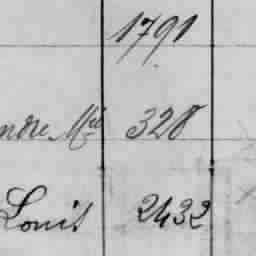 1791
ndre Mel 328
Louis 2432